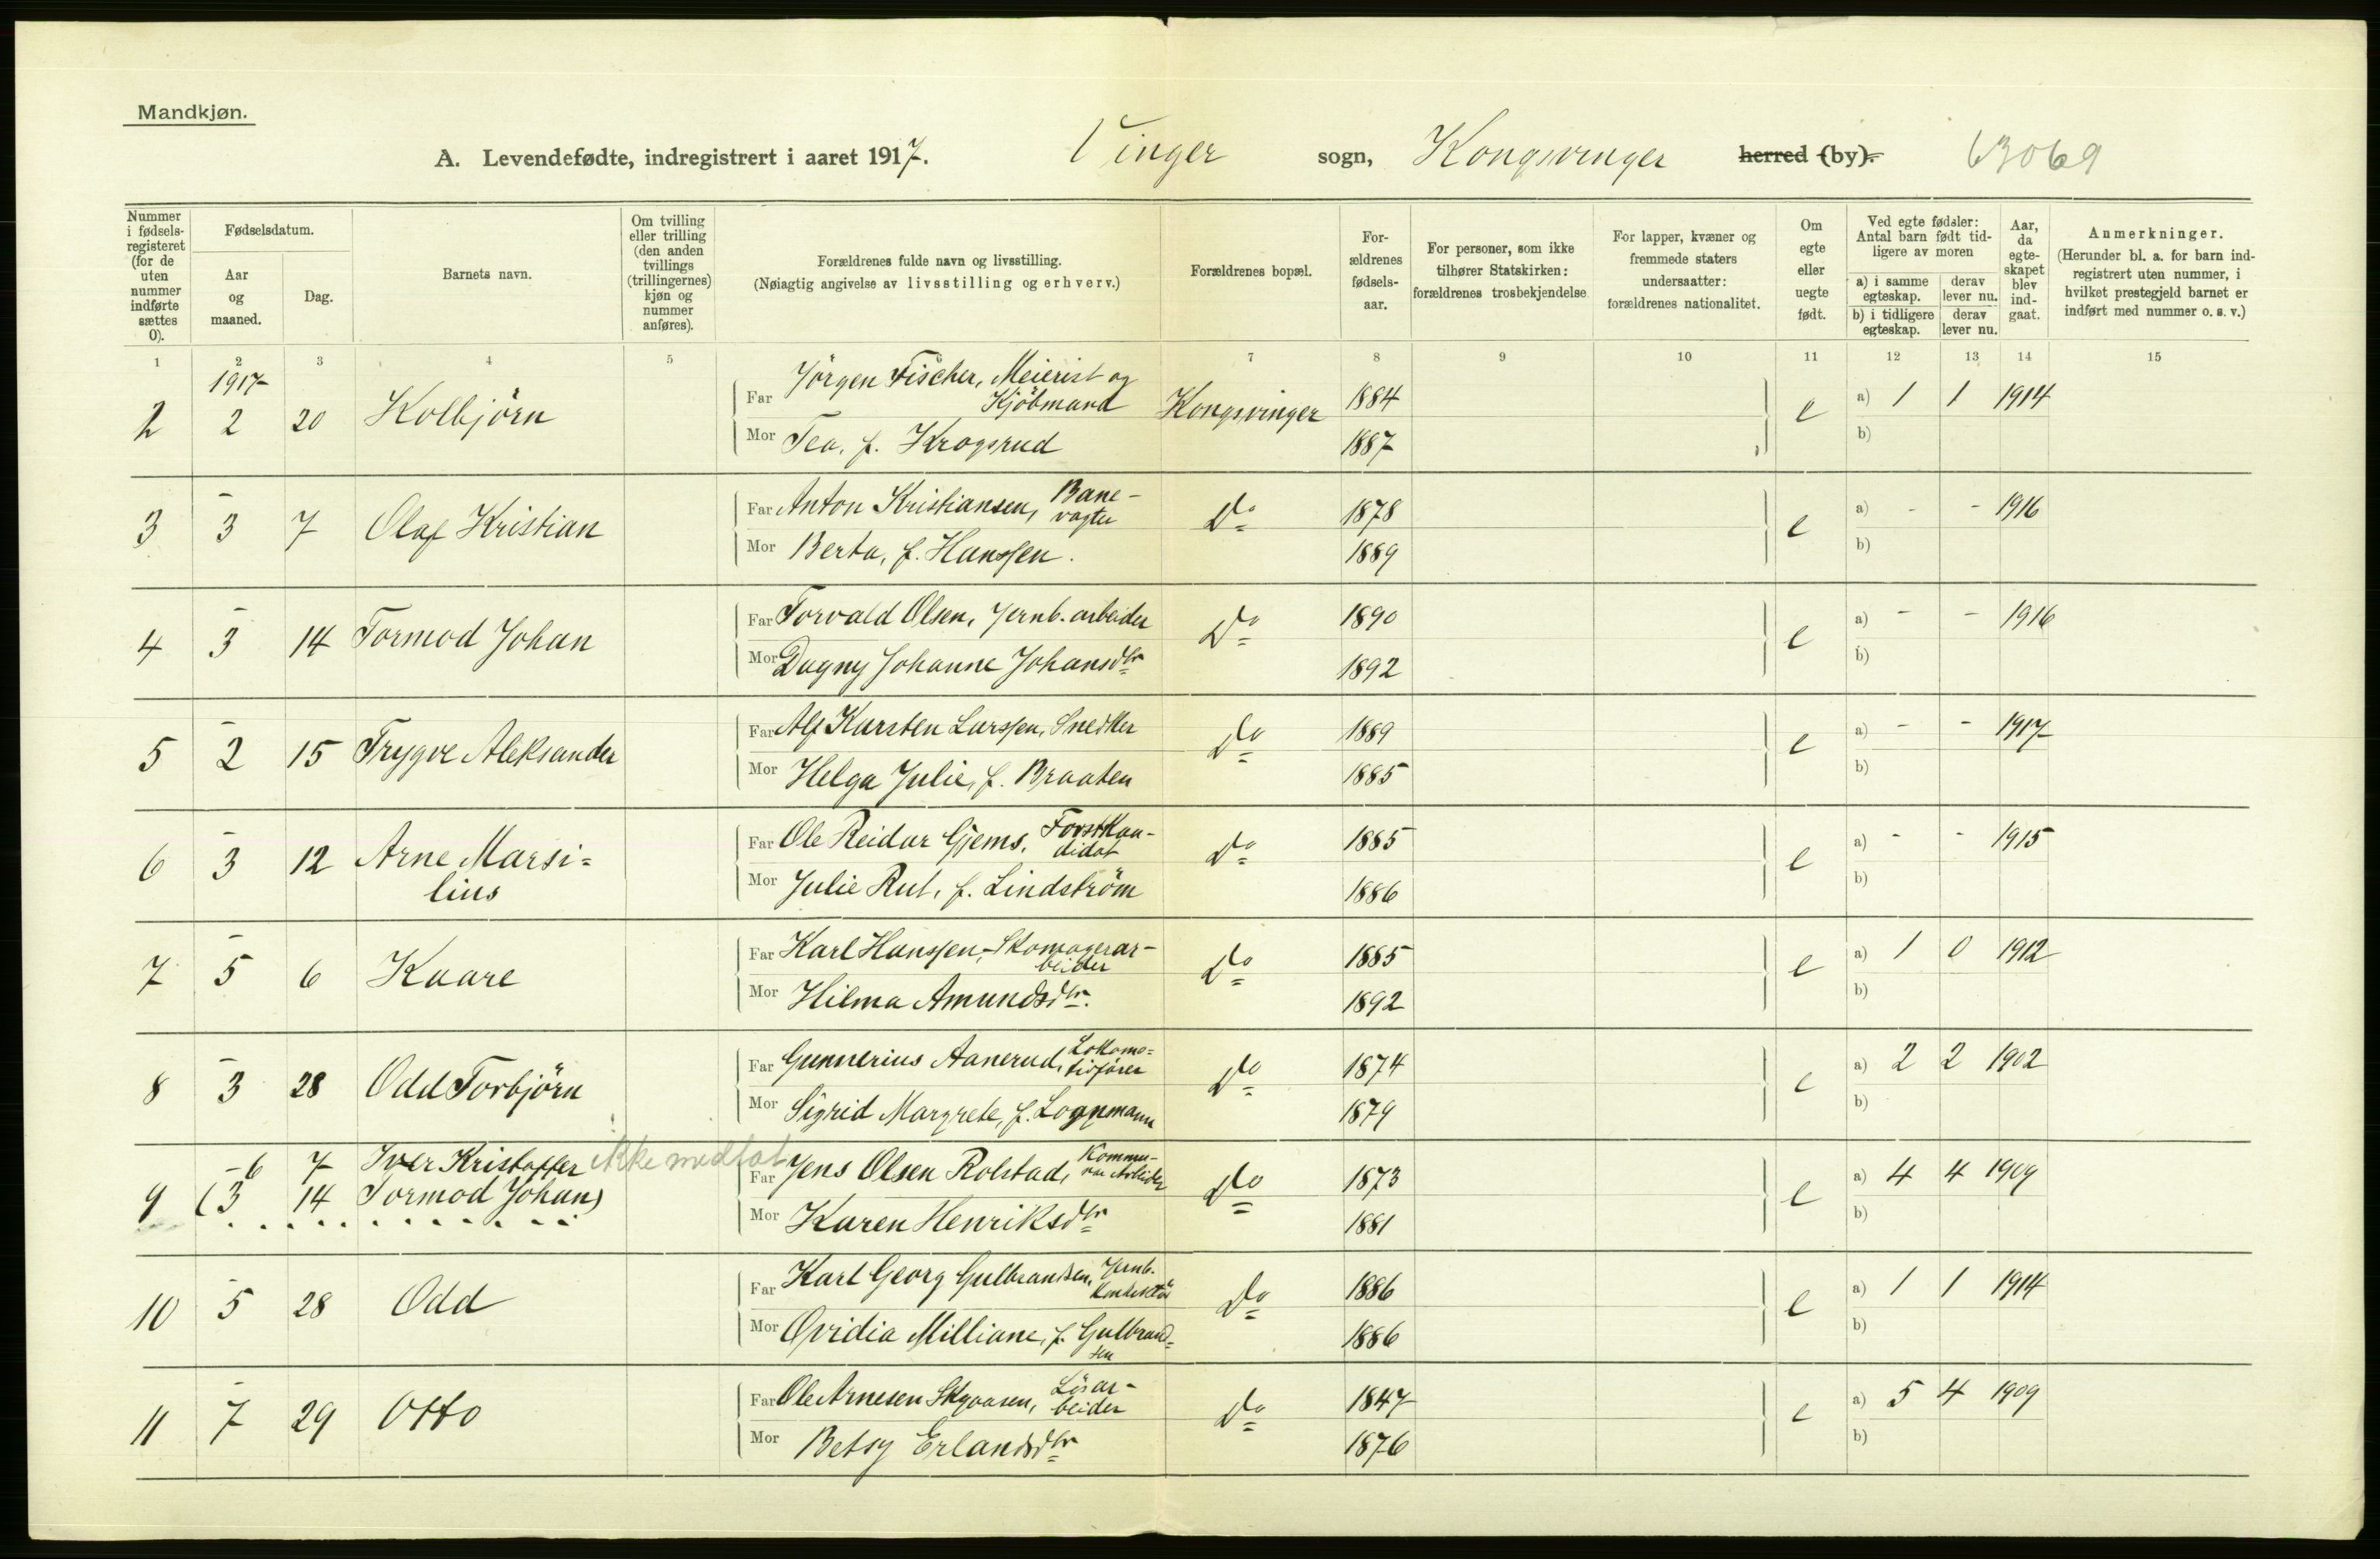 Mandkjøn.
A. Levendefødte, indregistrert i aaret 1917. Vinger sogn, Kongsvinger herred (by). 63069
Nummer i fødselsregisteret (for de uten nummer indførte sættes 0).
Fødselsdatum.
Aar og maaned.
Dag.
Barnets navn.
Om tvilling eller trilling (den anden tvillings (trillingernes) kjøn og nummer anføres).
Forældrenes fulde navn og livsstilling.
(Nøiagtig angivelse av livsstilling og erhverv.)
Forældrenes bopæl.
Forældrenes fødselsaar.
For personer, som ikke tilhører Statskirken: forældrenes trosbekjendelse
For lapper, kvæner og fremmede staters undersaatter: forældrenes nationalitet.
Om egte eller uegte født.
Ved egte fødsler: Antal barn født tidligere av moren
a) i samme egteskap. derav lever nu.
b) i tidligere egteskap. derav lever nu.
Aar, da egteskapet blev indgaat.
Anmerkninger.
(Herunder bl. a. for barn indregistrert uten nummer, i hvilket prestegjeld barnet er indført med nummer o. s. v.)
1 2 3 4 5 6 7 8 9 10 11 12 13 14 15
1917
2 2 20 Kolbjörn Far Jörgen Fischer, Meierist og Kjöbmand Kongsvinger 1884 e a) 1 1 1914
Mor Tea, f. Krogsrud 1887 b)
3 - 3 7 Olaf Kristian Far Anton Kristiansen, Banevogter Do 1878 e a) - - 1916
Mor Berta, f. Hanssen. 1889 b)
4 - 3 14 Tormod Johan Far Torvald Olsen, Jernb. arbeider Do 1890 e a) - - 1916
Mor Dagny Johanne Johansdtr 1892 b)
5 - 2 15 Trygve Aleksander Far Alf Karsten Larssen, Snedker Do 1889 e a) - - 1917
Mor Helga Julie, f. Braaten 1885 b)
6 - 3 12 Arne Marsi= lius Far Ole Reidar Gjems, Forstkan- didat Do 1885 e a) - - 1915
Mor Julie Rut, f. Lindström 1886 b)
7 - 5 6 Kaare Far Karl Hanssen, Skomagerar- beider Do 1885 e a) 1 0 1912
Mor Hilma Amundsdtr. 1892 b)
8 - 3 28 Odd Torbjörn Far Gunnerius Aanerud, Lokomo= tivförer Do 1874 e a) 2 2 1902
Mor Sigrid Margrete, f. 1879 b)
9 - 6 7 Iver Kristoffer ikke medtat Far Jens Olsen Rolstad, Arbeider Do 1873 e a) 4 4 1909
(3 14 Tormod Johan) Mor Karen Henriksdtr 1881 b)
10 - 5 28 Odd Far Karl Georg Gulbrandsen, Jernb. Konduktör Do 1886 e a) 1 1 1914
Mor Ovidia Milliane, f. Gulbrand= sen 1886 b)
11 - 7 29 Otto Far Ole Arnesen Skyaasen, Lösar- beider Do 1847 e a) 5 4 1909
Mor Betsy Erlandsdtr 1876 b)